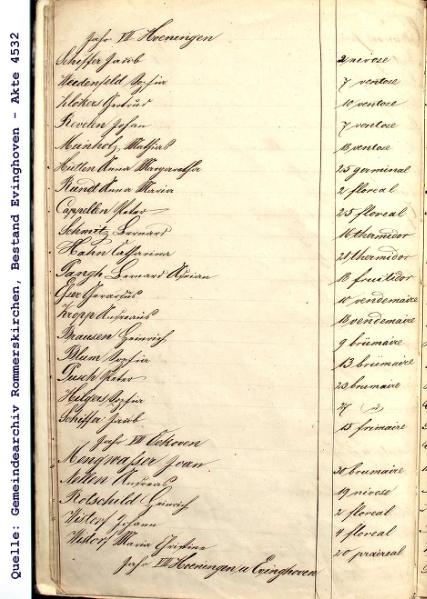 Quelle: Gemeindearchiv Rommerskirchen, Bestand Evinghoven - Akte 4532
Jahr VII Hoeningen
Schiffer Jacob 2 nivose
Weidenfeld Sophia 7 ventose
Klöker Gertrud 10 ventose
Johan 7 ventose
Meinholz Mathias ventose
Hütten Anna Margaretha 25 germinal
Rund Anna Maria 2 floreal
Cappellen Peter 25 floreal
Schmitz Bernard 16 thermidor
Hahn Catharina 21 thermidor
Bernard Adrian 18 fruitidor
Esser Gerardus vendemaire
Kropp Andreas vendemaire
Brausen Heinrich 9 brümaire
Blum Sophia 13 brümaire
Pusch Peter 23 brumaire
Hilgers Sophia 27
Schiffer Jacob 15 frimaire
Jahr VII
Mengwasser Joan 30 brumaire
Nellen Andreas 19 nivose
Rotschild Heinrich 2 floreal
Wistorf Johann 4 floreal
Wistorf Maria Christine 20 praireal
Jahr VIII Hoeningen u Evinghoven